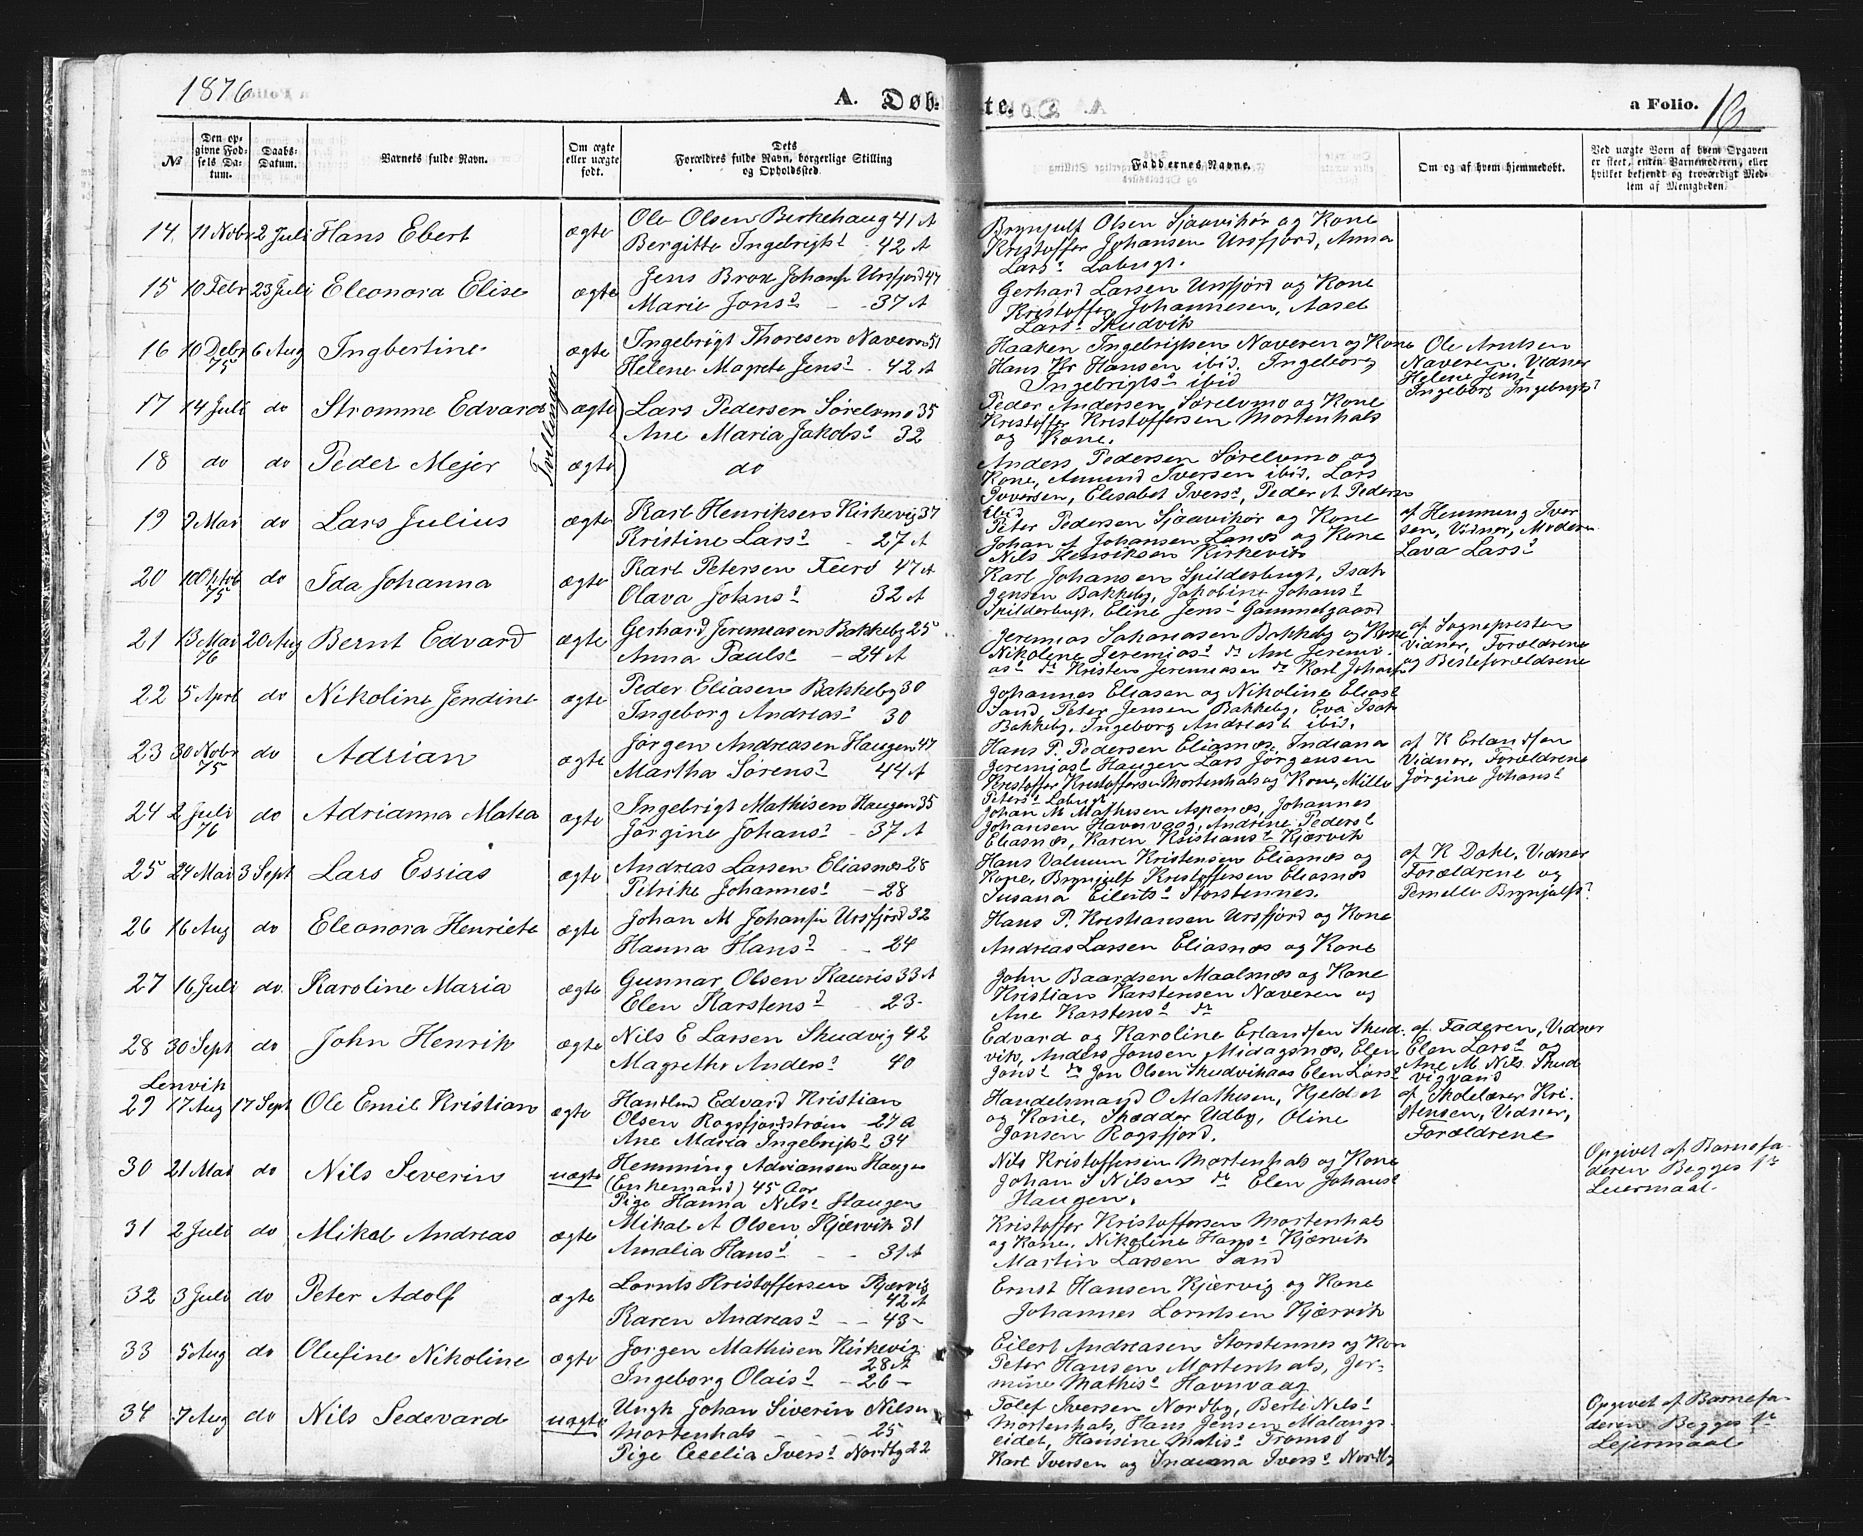 1876
A. Døbte.
a Folio. 16
№
Den opgivne Fødsels Datum.
Daabs-Datum.
Barnets fulde Navn.
Om ægte eller uægte født.
Dets Forældres fulde Navn, borgerlige Stilling og Opholdssted.
Faddernes Navne.
Om og af hvem hjemmedøbt.
Ved uægte Børn af hvem Opgaven er skeet, enten Barnemoderen, eller hvilket bekjendt og troværdigt Medlem af Menigheden.
14 11 Nobr 2 Juli Hans Ebert ægte
Ole Olsen Birkehaug 41 A
Bergitte Ingebrigts? 42 A
Brynjulf Olsen Sjaavikør og Kone
Kristoffer Johansen Ursfjord, Anna
Lars? Lobugt.
15 10 Febr 23 Juli Eleonora Elise ægte
Jens Brox Johans. Ursfjord 47
Marie Jons? 37 A
Gerhard Larsen Ursfjord og Kone
Kristoffer Johannesen, Aasel
Lars? Skudvik
16 10 Debr 75 6 Aug Ingbertine ægte
Ingebrigt Thoresen Naveren 51
Helene Magrete Jens? 42 A
Haaken Ingebrigtsen Naveren og Kone
Hans Kr Hansen ibid. Ingeborg
Ingebrigts? ibid
Ole Arntsen
Naveren. Vidner
Helene Jens?
Ingeborg Ingebrigts?
Tvillinger
17 14 Juli do Stromme Edvard ægte
Lars Pedersen Sørelvmo 35
Ane Maria Jakobs? 32
Peder Andersen Sørelvmo og Kone
Kristoffer Kristoffersen Mortenhals
og Kone.
18 do do Peder Mejer ægte do
Anders Pedersen Sørelvmo og
Kone, Amund Iversen ibid, Lars
Iversen, Elisabet Ivers?, Peder A Peders
ibid
19 2 Mai do Lars Julius ægte
Karl Henriksen Kirkevig 37
Kristine Lars? 27 A
Peter Pedersen Sjaavikør og Kone
Johan A Johansen Lanes og Kone
Nils Henriksen Kirkevik
af Hemming Iver
sen, Vidner, Moderen
Lava Lars?
20 10 Oktob 75 do Ida Johanna ægte
Karl Petersen 47 A
Olava Johns? 32 A
Karl Johansen Spilderbugt, Isak
Jensen Bakkeby, Jakobine Johans?
Spilderbugt, Eline Jens? Gammelgaard
21 13 Mai 76 20 Aug Bernt Edvard ægte
Gerhard Jeremiasen Bakkeby 25
Anna Pauls? 24 A
Jeremias Sakariasen Bakkeby og Kone
Nikoline Jeremias? do Ane Jeremi
as? do Kristen Jeremiasen do Karl Johans?
af Sognepresten
Vidner, Forældrene
og Besteforældrene
22 5 April do Nikoline Jendine ægte
Peder Eliasen Bakkeby 30
Ingeborg Andreas? 30
Johannes Eliasen og Nikoline Elias?
Sand, Peter Jensen Bakkeby, Eva Isak
Bakkeby, Ingeborg Andreas? ibid.
23 30 Nobr 75 do Adrian ægte
Jørgen Andreasen Haugen 47
Martha Sørens? 44 A
Hans P. Pedersen Eliasnæs, Indiana
Jeremias? Haugen Lars Jørgensen
Kristoffer Kristoffersen Mortenhals og Kone, Milla
Peters? Lobugt.
af K Erlandsen
Vidner, Forældrene
Jørgine Johans?
24 2 Juli 76 do Adrianna Malea ægte
Ingebrigt Mathisen Haugen 35
Jørgine Johans? 37 A
Johan M Mathisen Aspenæs, Johannes
Johansen Havnvaag, Andrine Peders?
Eliasnæs, Karen Kristians? Kjærvik
25 24 Mai 3 Sept Lars Essias ægte
Andreas Larsen Eliasnæs 28
Petrike Johannes? 28
Hans Valuum Kristensen Eliasnæs og
Kone, Brynjulf Kristoffersen Eliasnæs
Susana Eilerts? Storstennes.
af K Dahl, Vidner
Forældrene og
Pernelle Brynjulfs?
26 16 Aug do Eleonora Henriete ægte
Johan M Johans. Ursfjord 32
Hanna Hans? 24
Hans P. Kristiansen Ursfjord og Kone
Andreas Larsen Eliasnæs og Kone
27 16 Juli do. Karoline Maria ægte
Gunnar Olsen Rauris 33 A
Elen Karstens? 23
John Baardsen Maalsnæs og Kone
Kristian Karstensen Naveren og
Ane Karstens? do
28 30 Sept do John Henrik ægte
Nils E Larsen Skudvig 42
Magrethe Anders? 40
Edvard og Karoline Erlandsen Skud-
vik, Anders Jonsen Midagsnæs, Elen
Jons? do Jon Olsen Skudvikaas Elen Lars?
af Faderen, Vidner
Elen Lars? og
Ane M Nils. Skud
vigvand
Lenvik
29 17 Aug 17 Sept Ole Emil Kristian ægte
Handlend Edvard Kristian
Olsen Rogsfjordstrøm 27 A
Ane Maria Ingebrigts? 34
Handelsmand O Mathisen, Kjeldet
og Kone, Skædder Udby, Oline
Jonsen Rogsfjord.
af Skolelærer Kri-
stensen, Vidner,
Forældrene
30 21 Mai do Nils Severin uægte
Hemming Adriansen Haugen
(Enkemand) 45 Aar
Pige Hanna Nils? Haugen
Nils Kristoffersen Mortenhals og Kone
Johan S Nilsen do Elen Johans?
Haugen.
Opgivet af Barnefa-
deren Begges 1te
Leiermaal.
31 2 Juli do Mikal Andreas ægte
Mikal A Olsen Kjærvik 31
Amalia Hans? 31 A
Kristoffer Kristoffersen Mortenhals
og Kone, Nikoline Hans? Kjærvik
Martin Larsen Sand
32 3 Juli do Peter Adolf ægte
Lornts Kristoffersen Kjærvig
42 A
Karen Andreas? 43
Ernst Hansen Kjærvig og Kone
Johannes Lorntsen Kjærvik
33 5 Aug do Olufine Nikoline ægte
Jørgen Mathisen Kirkevig
28 A
Ingeborg Olais? 26
Eilert Andreasen Storstennes og Kon
Peter Hansen Mortenhals, Jer-
mine Mathis? Havnvaag
34 7 Aug do Nils Sedevard uægte
Ungk Johan Siverin Nilsen
Mortenhals 25
Pige Cecelia Ivers? Nordby 22
Tolef Iversen Nordby, Berti Nils?
Mortenhals, Hans Jensen Malangs-
eidet, Hansine Matis? Tromsø
Karl Iversen og Indiana Ivers? Nordby
Opgivet af Barnefa-
deren Begges 1te
Lejermaal